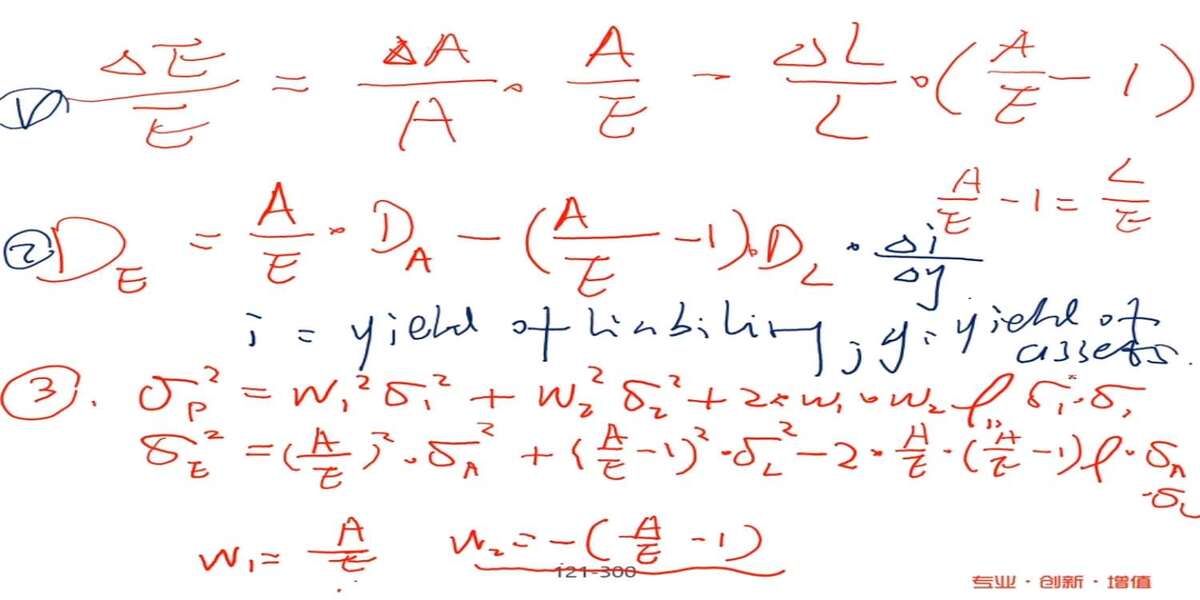 ① ΔE/E = ΔA/A · A/E - ΔL/L · (A/E - 1)
A/E - 1 = L/E
② D_E = A/E · D_A - (A/E - 1) · D_L · Δi/Δy
i = yield of liability, y: yield of assets.
③. σ_P² = w₁²σ₁² + w₂²σ₂² + 2·w₁·w₂ρ₁₂σ₁·σ₂
σ_E² = (A/E)²·σ_A² + (A/E - 1)²·σ_L² - 2·A/E·(A/E - 1)ρ·σ_A·σ_L
w₁ = A/E w₂ = -(A/E - 1)
121-300
专业·创新·增值